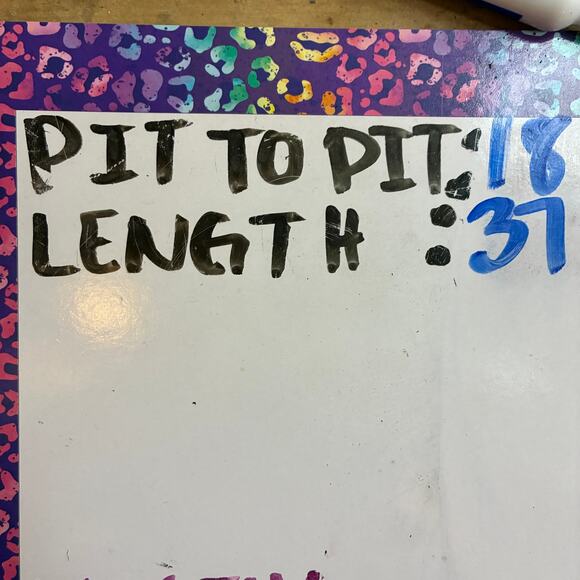 PIT TO PIT: 18
LENGTH : 37